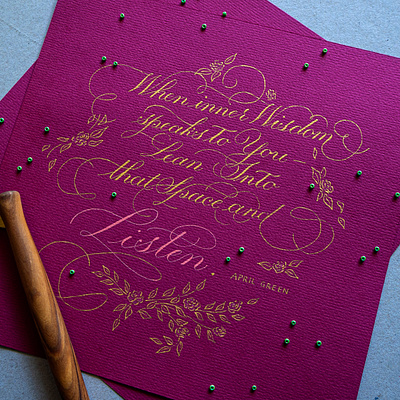 When inner Wisdom
speaks To You –
Lean Into
that Space and
Listen.
APRIL GREEN